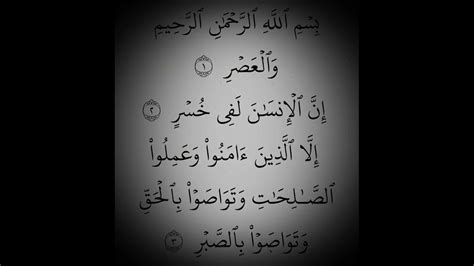 بِسْمِ ٱللَّهِ ٱلرَّحْمَٰنِ ٱلرَّحِيمِ
وَٱلْعَصْرِ ١
إِنَّ ٱلْإِنسَٰنَ لَفِى خُسْرٍ ٢
إِلَّا ٱلَّذِينَ ءَامَنُوا۟ وَعَمِلُوا۟
ٱلصَّٰلِحَٰتِ وَتَوَاصَوْا۟ بِٱلْحَقِّ
وَتَوَاصَوْا۟ بِٱلصَّبْرِ ٣